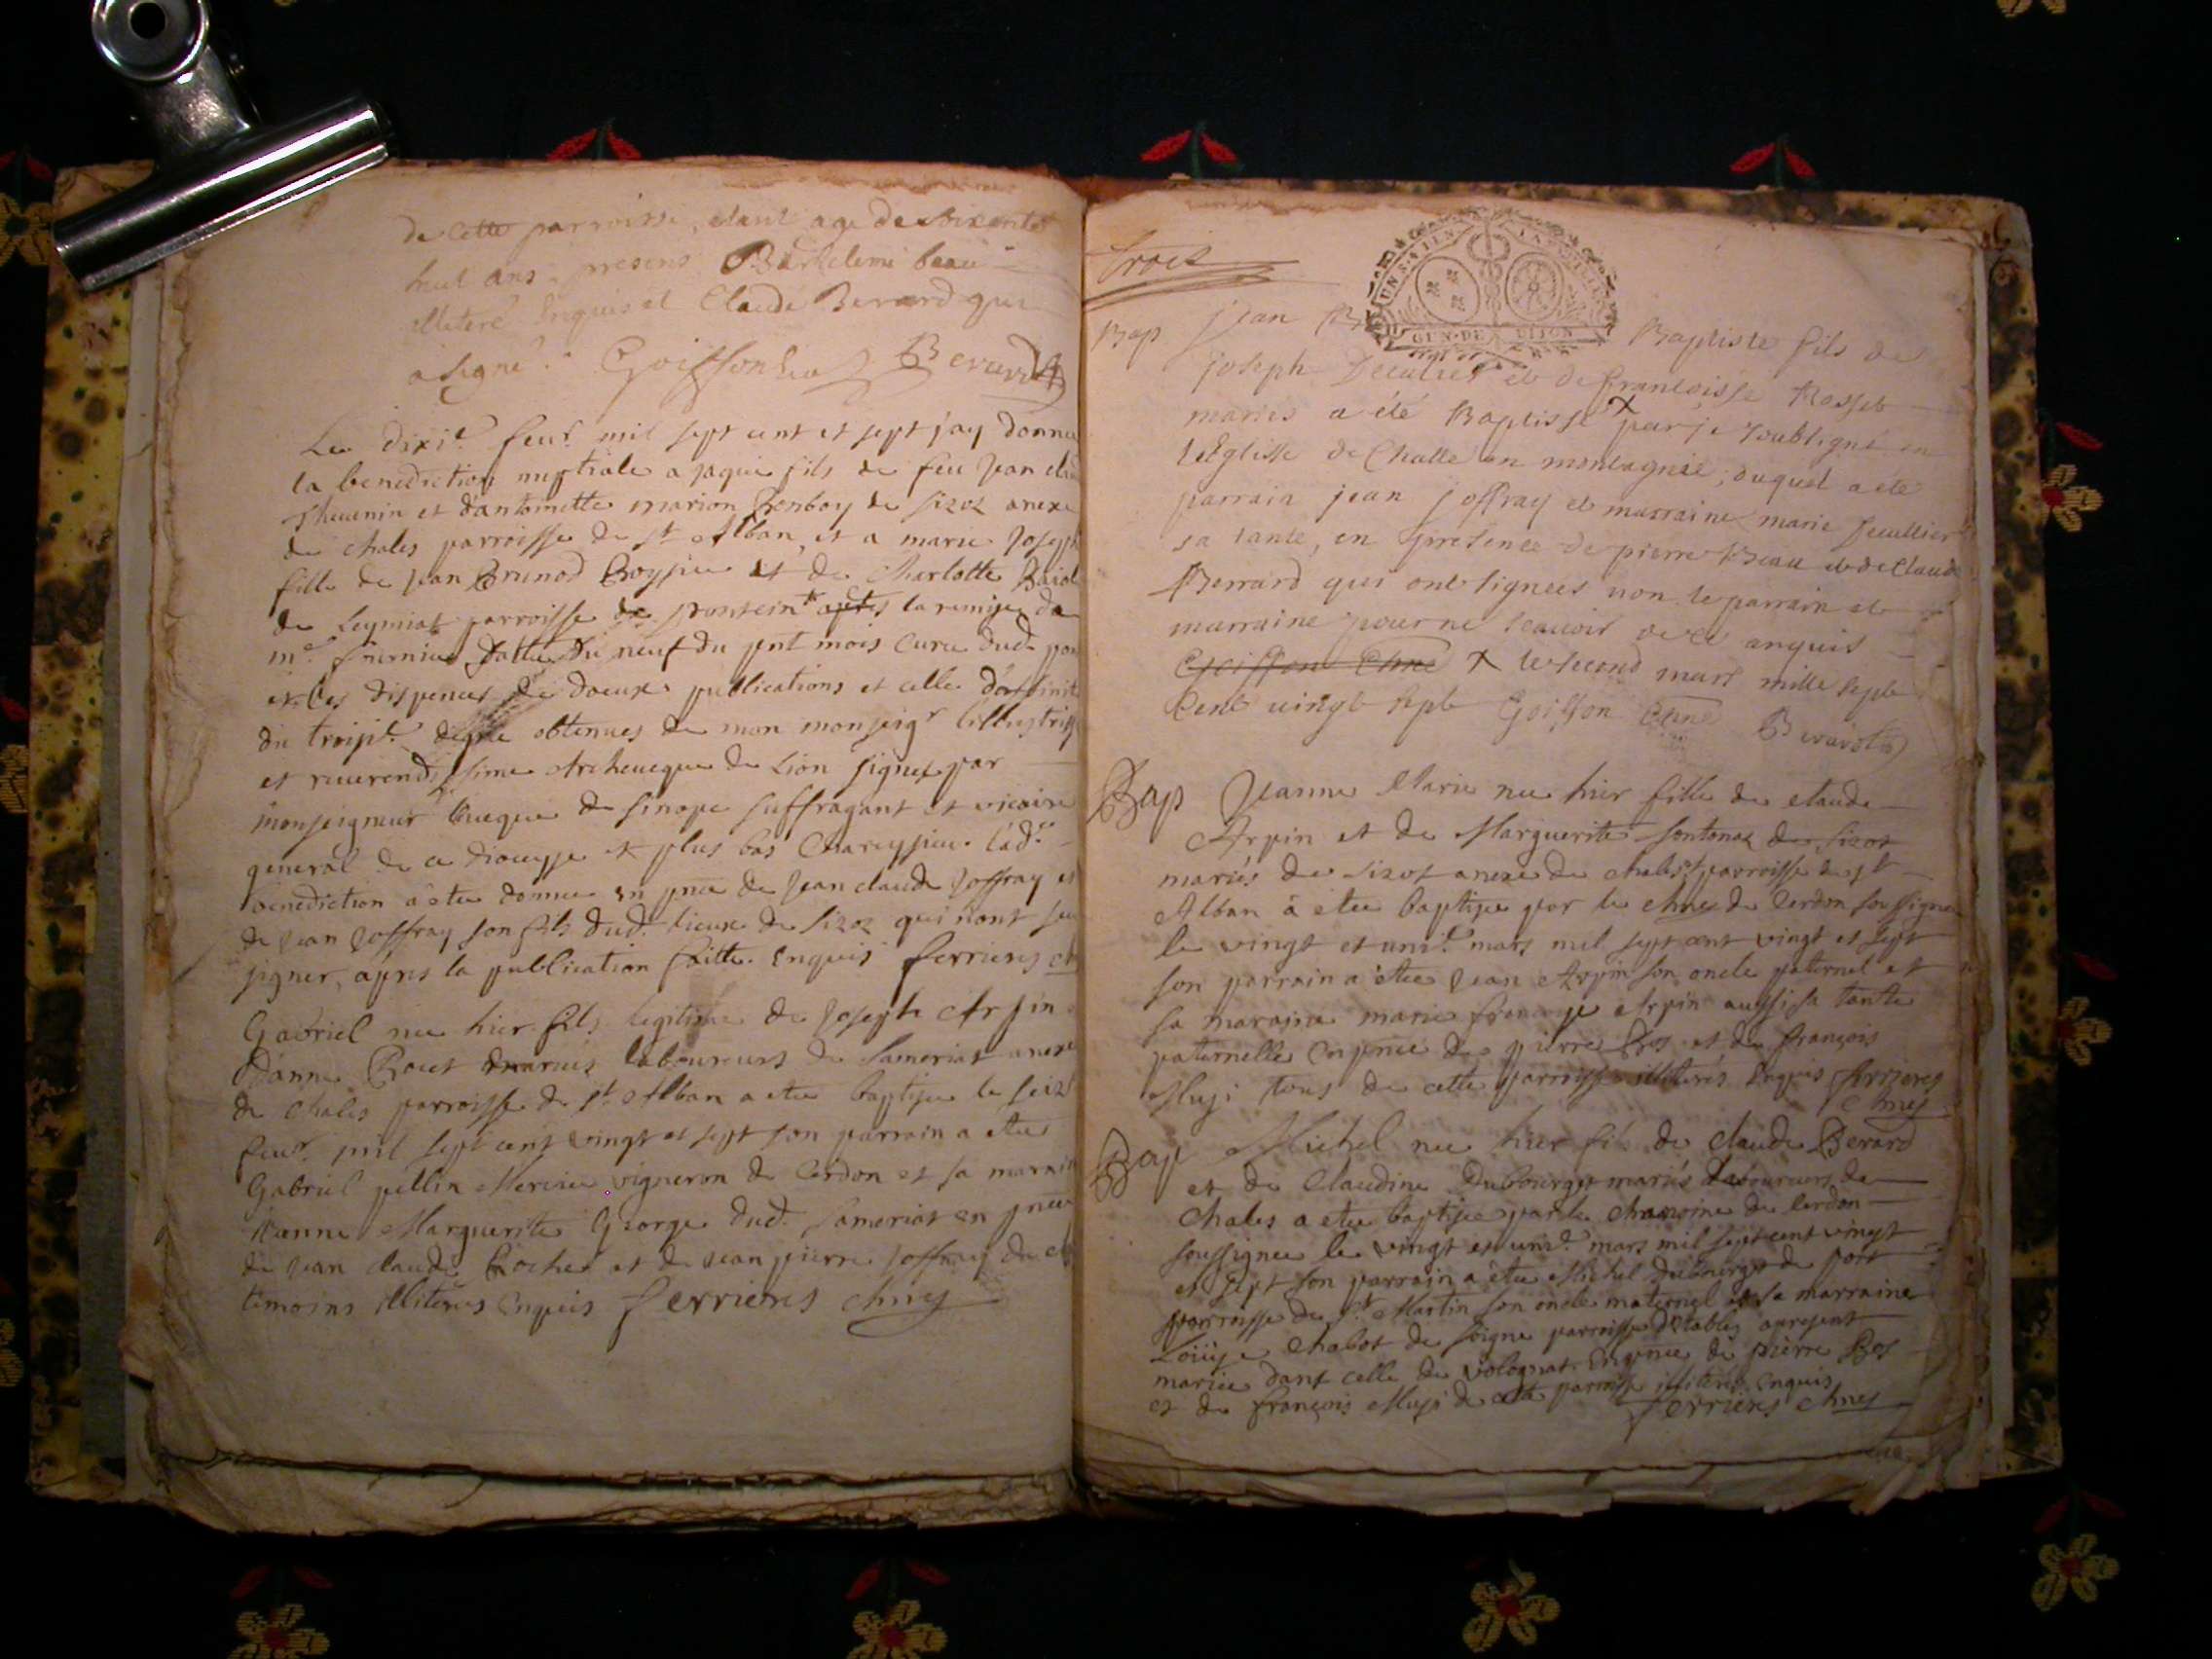 de cette parroisse, etant age de soixante
huit ans, presens Bartelemi beau
illiteré Enquis et Claude Berard qui
a signé. Goiffon Berard
Le dixie. feur. mil sept cent et sept j'ay donné
la benediction nuptiale a jaque fils de feu jean clau
Thevenin et d'antoinette marion de Sizoz anexe
de chales parroisse de st Alban, et a marie joseph
fille de jean Brunod et de Charlotte
de Leymiat parroisse de poncein la remise de
mr. Datte du neuf du pnt mois Curé dud.
et les dispences de deux publications et celle d'affinit
du troisie. degré obtenues de mon monseigr L'illustriss
et reverendissime Archeveque de Lion signé par
monseigneur Eveque de Sinope suffragant et vicaire
general de ce diocesse et plus bas Lad.
benediction a eté donnée en pnce de jean claude joffray et
de jean joffray son fils dud. lieux de Sizoz qui n'ont sceu
signer, apres la publication faitte Enquis ferrieres
Gabriel né hier fils legitime de joseph Arpin
d'anne mariés laboureurs de Sameriat anexe
de chales parroisse de st Alban a eté baptisé le seiz
feur. mil sept cent vingt et sept son parrain a eté
Gabriel pellin Mercier vigneron de Cerdon et sa maraine
Jeanne Marguerite George dud. Sameriat en pnce
de jean claude et de jean pierre joffray du
temoins illiterés Enquis ferrieres chne
trois
GEN·DE DIJON
Bap jean Baptiste fils de
joseph et de francoisse Rosset
mariés a été Baptissé x par je soubsigné en
l'Eglisse de Challe en montagnie, duquel a été
parrain jean joffray et marraine marie
sa tante, en presence de pierre Beau et de Claude
Berrard qui ont signees non le parrain et
marraine pour ne scauoir de ce anquis
Goiffon Chne x le second mars mille sept
Cent vingt sept Goiffon Chne Berard
Bap Jeanne Marie née hier fille de claude
Arpin et de Marguerite de Sizot
mariés de Sizot anexe de chales parroisse de st
Alban à eté baptisée par le chne de Cerdon soussigné
le vingt et unie. mars mil sept cent vingt et sept
son parrain a eté jean Arpin son oncle paternel et
sa maraine marie francoise Arpin aussi sa tante
paternelle En pnce de pierre Bos et de françois
tous de cette parroisse illiterés Enquis ferrieres
chne
Bap Michel né hier fils de claude Berard
et de Claudine Dubourget mariés Laboureurs de
Chales a eté baptisé par le chanoine de Cerdon
soussigné le vingt et unie. mars mil sept cent vingt
et sept son parrain a eté Michel dubourget de port
parroisse de st Martin son oncle maternel et sa marraine
Loüise Chabot de Soigne parroisse d'Etables apresent
mariée dans celle de Volognat En pnce de pierre Bos
et de françois de cette parroisse illiterés Enquis
ferrieres chne